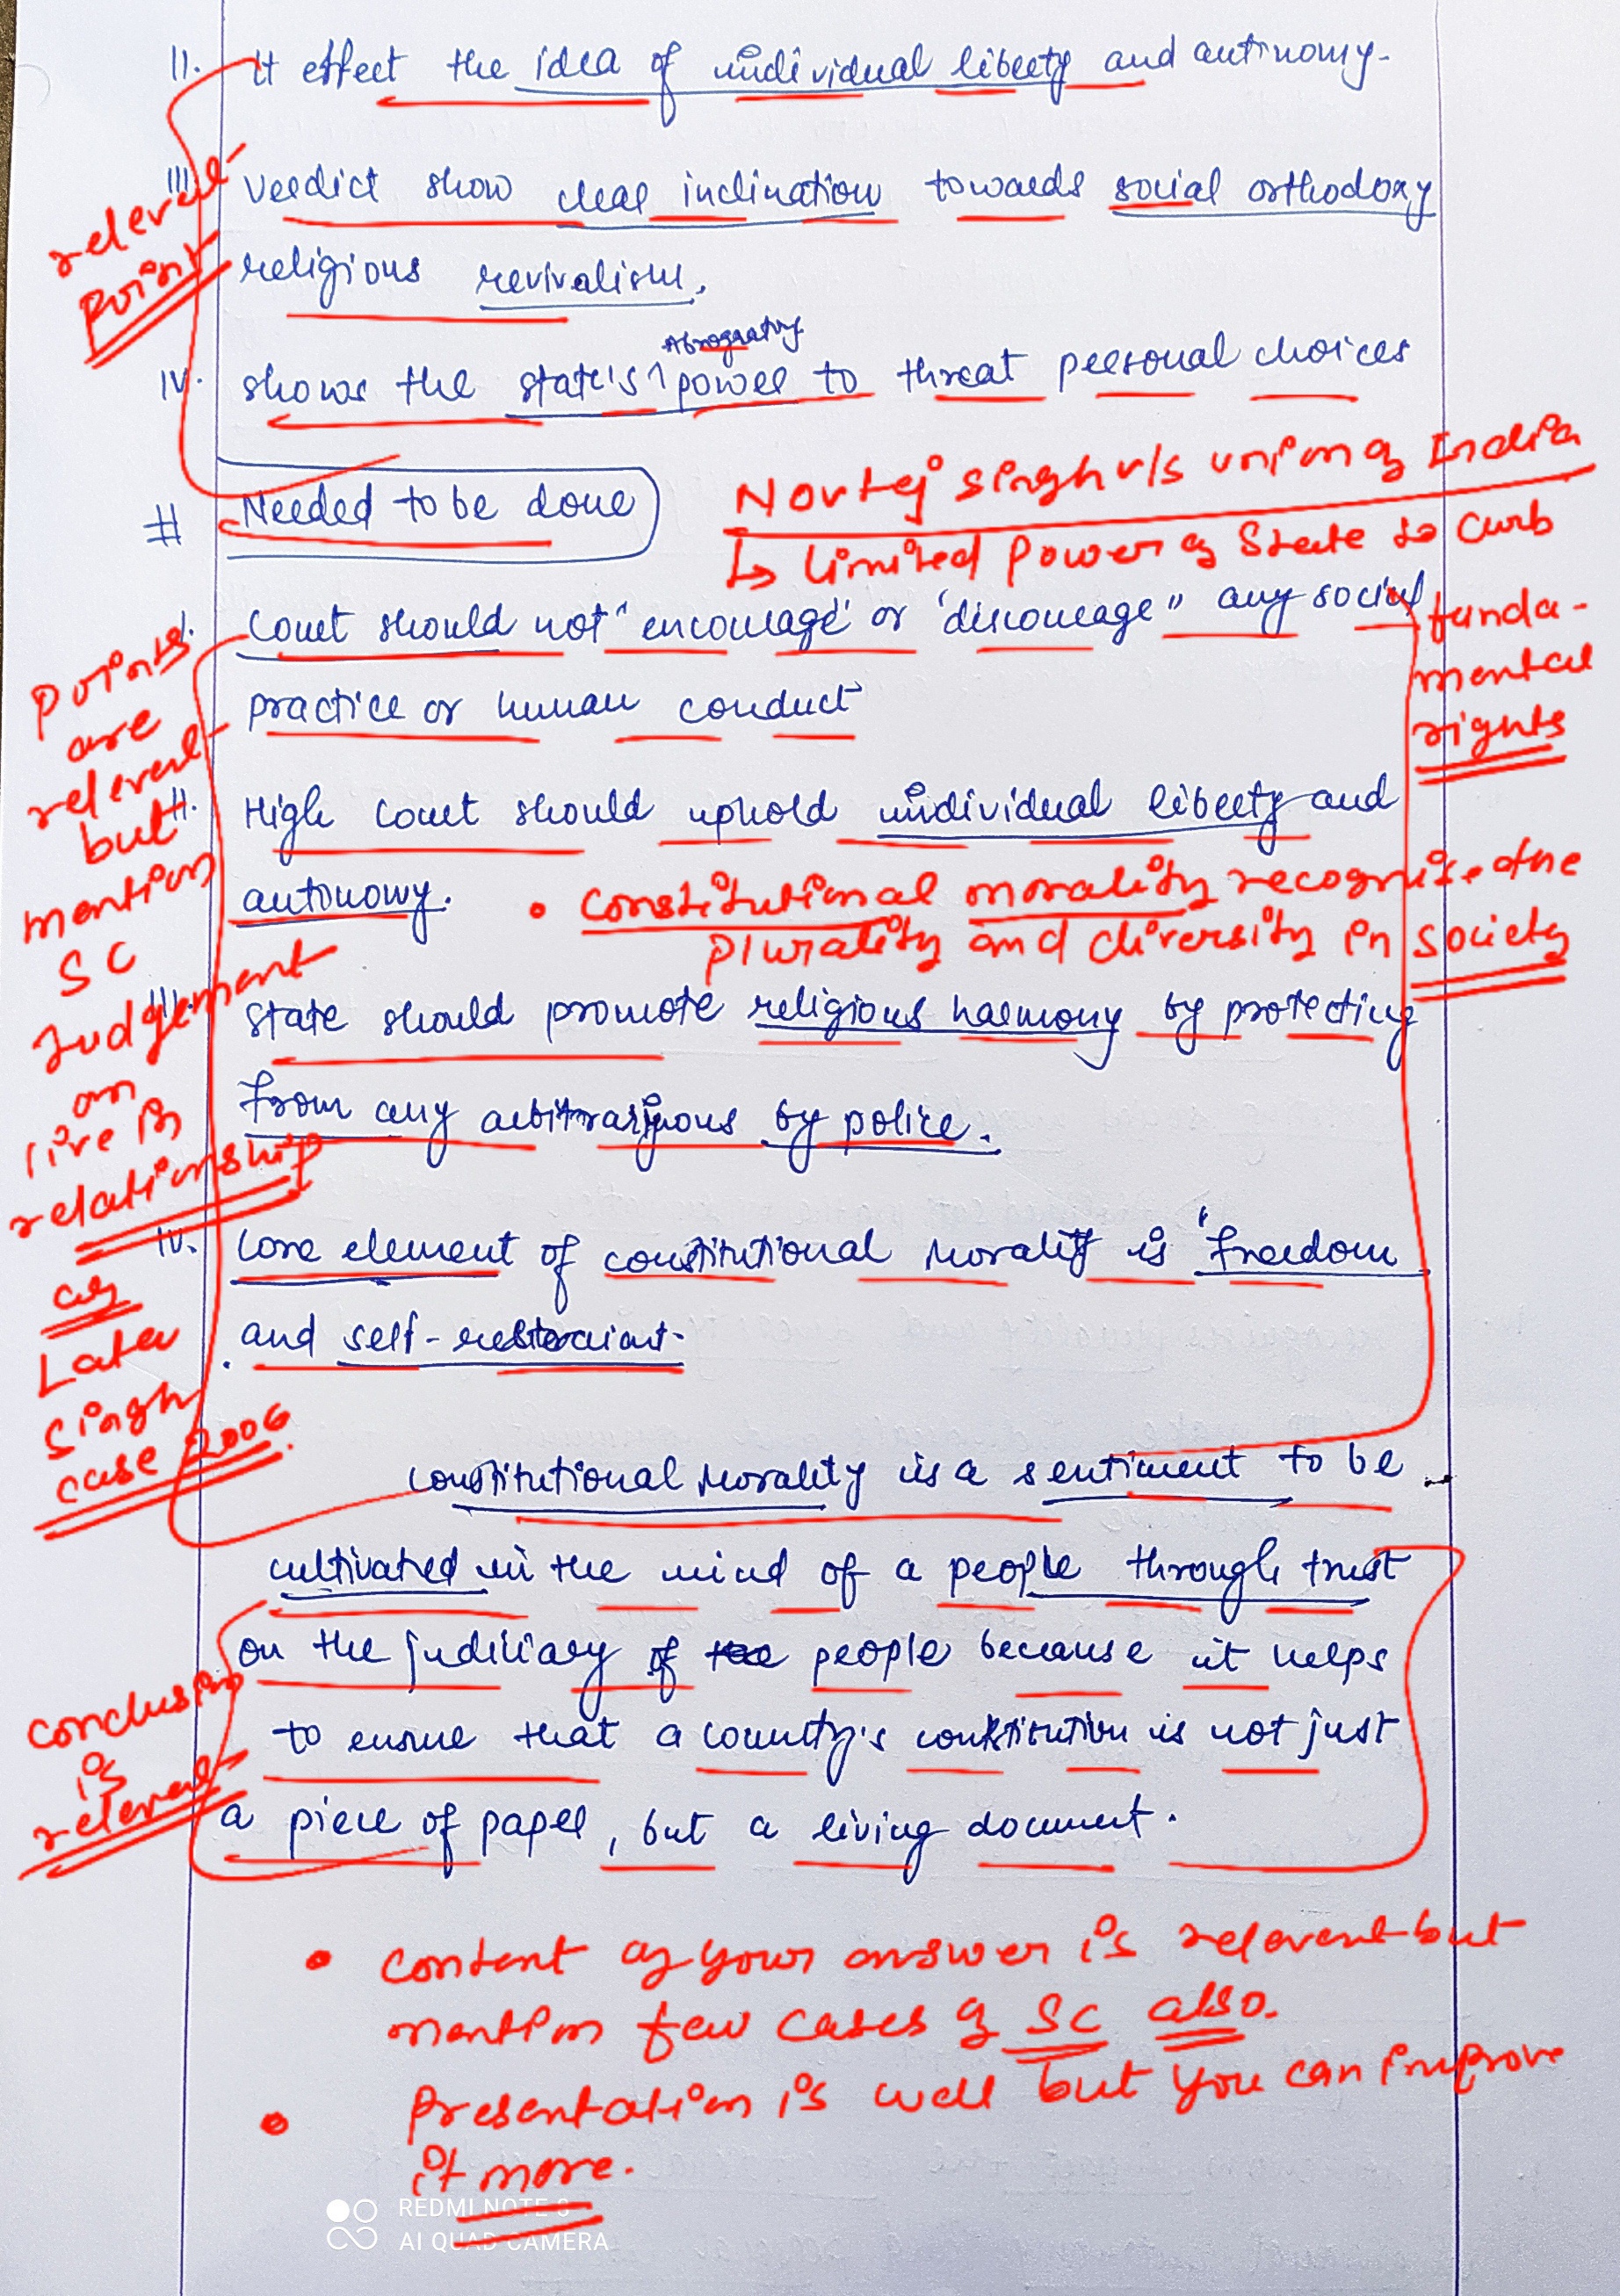 II. It effect the idea of individual liberty and autinomy.
III. Verdict show clear inclination towards social orthodoxy
religious revivalism.
relevent
Point
Abrogratry
IV. shows the state's power to threat personal choices
# Needed to be done
Navtej Singh v/s union of India
↳ limited Power of State to Curb
funda-
mental
rights
I. Court should not "encourage" or 'discourage" any social
practice or human conduct
II. High Court should uphold individual liberty and
autinowy.
• Constitutional morality recognise the
plurality and diversity in society
III. State should promote religious harmony by protecting
from any arbitrarious by police.
Points
are
relevent
but
mention
SC
Judgement
on
live in
relationship
as
Later
Singh
case 2006
IV. Core element of constitutional Morality is 'freedom
and self-restraint.
Constitutional Morality is a sentiment to be
cultivated in the mind of a people through trust
on the judiciary of people because it helps
to ensure that a country's constitution is not just
a piece of paper, but a living document.
conclusion
is
relevent
• content of your answer is relevent but
mention few cases of SC also.
• Presentation is well but you can improve
it more.
REDMI NOTE 8
AI QUAD CAMERA